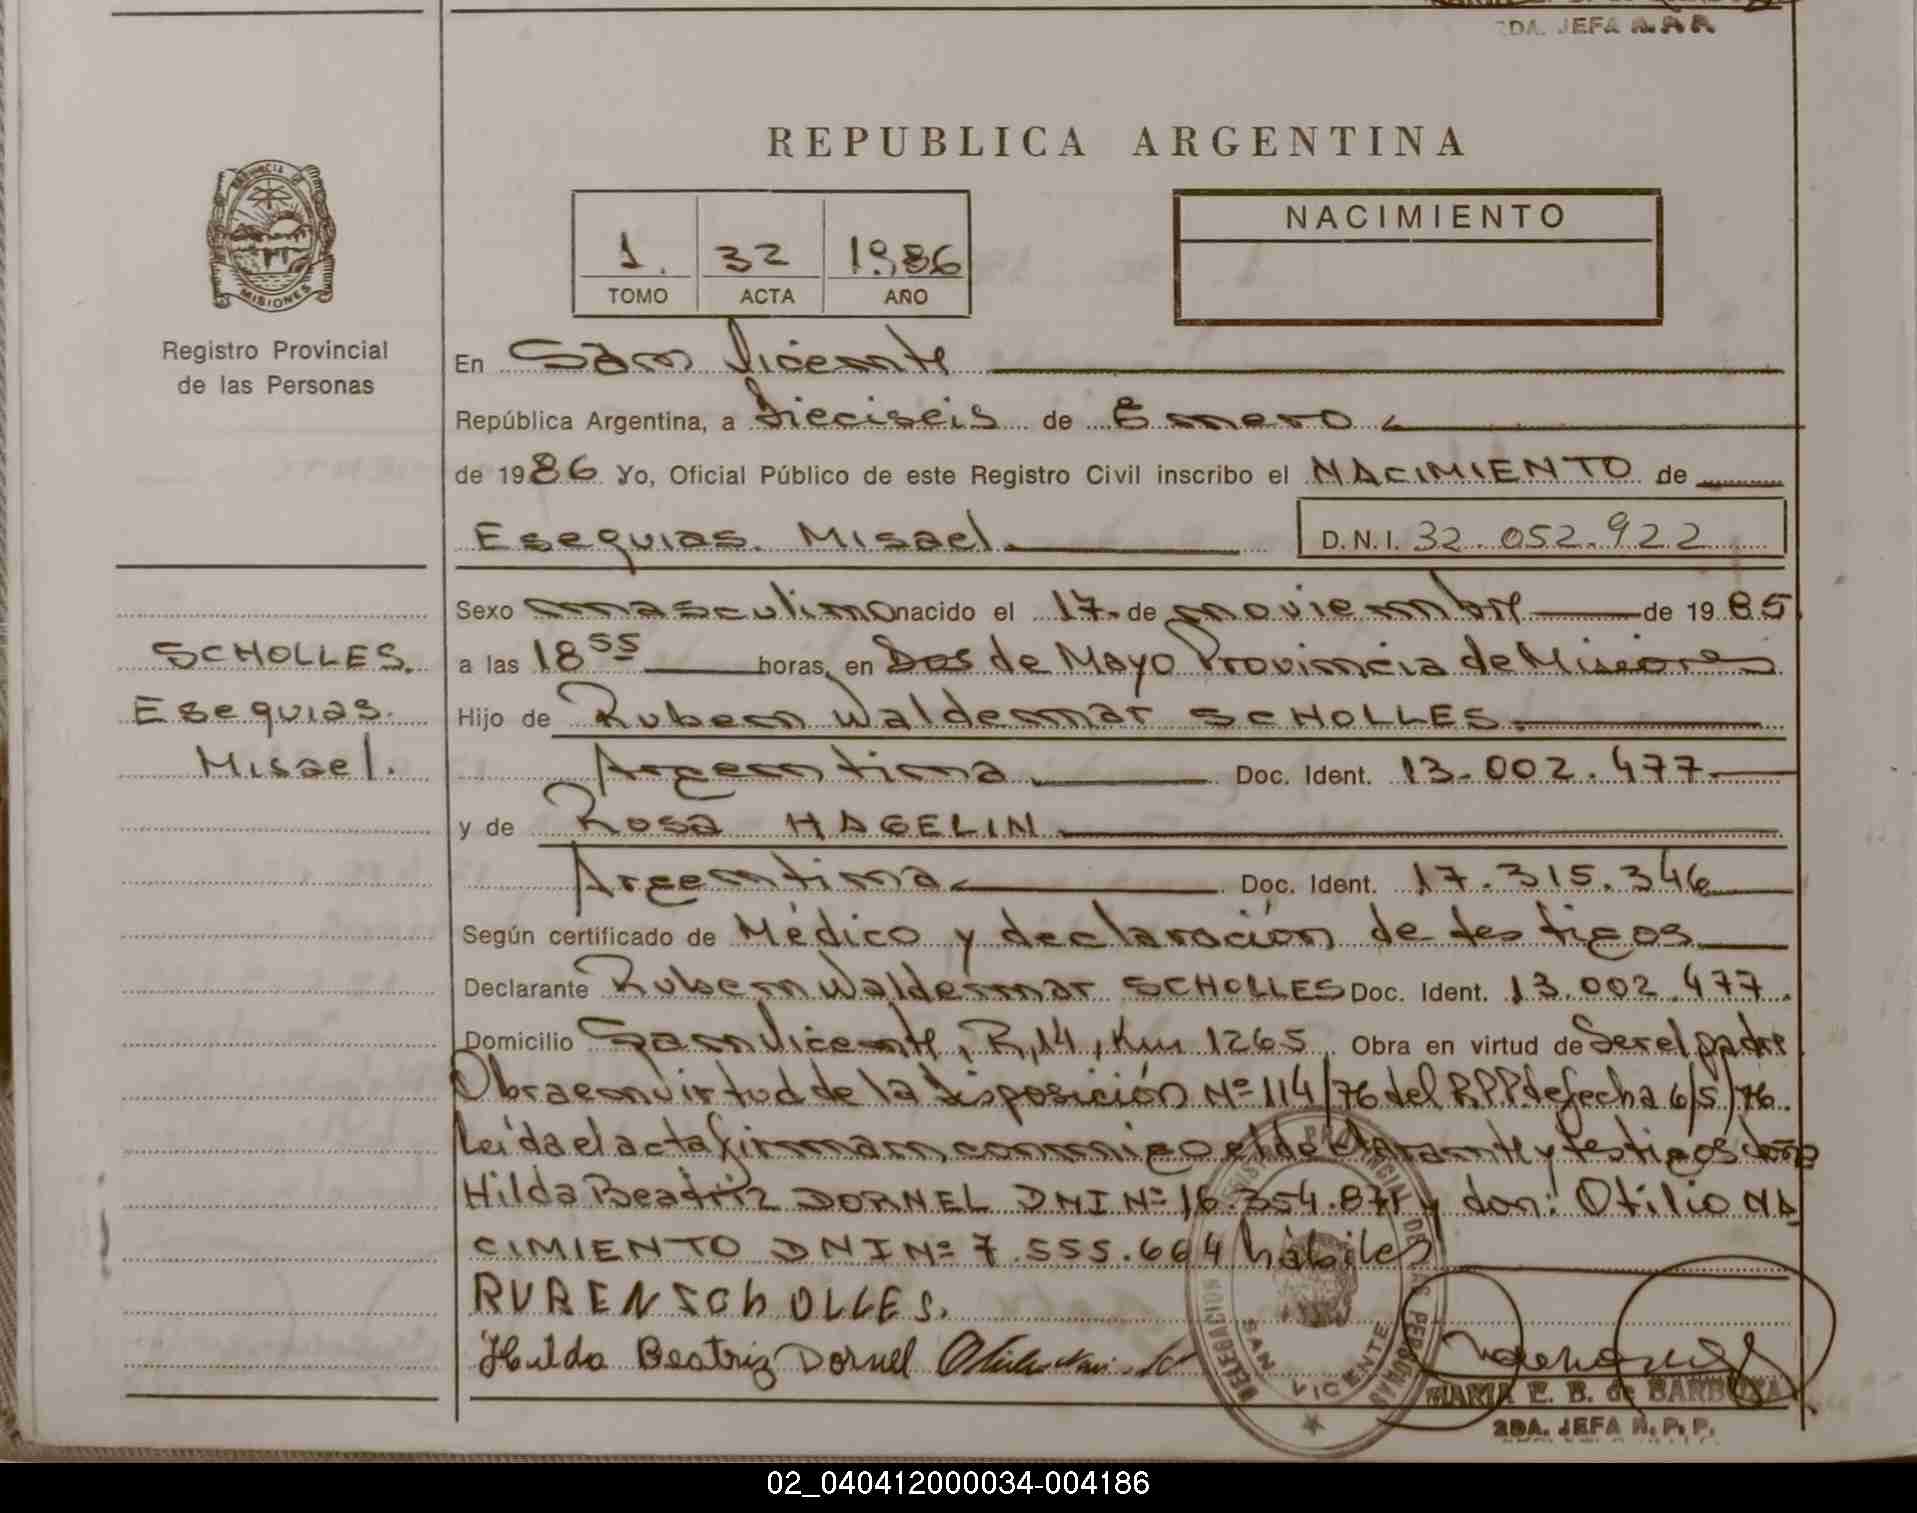 2DA. JEFA R.P.P.
REPUBLICA ARGENTINA
PROVINCIA DE
MISIONES
Registro Provincial
de las Personas
1. 32 1986
TOMO ACTA AÑO
NACIMIENTO
En San Vicente
República Argentina, a Dieciseis de Enero
de 1986 Yo, Oficial Público de este Registro Civil inscribo el NACIMIENTO de
Esequias. Misael D.N.I. 32.052.922
Sexo masculino nacido el 17 de noviembre de 1985
SCHOLLES.
Esequias.
Misael.
a las 18 55 horas, en Dos de Mayo Provincia de Misiones
Hijo de Ruben Waldemar SCHOLLES.
Argentina Doc. Ident. 13.002.477
y de Rosa HAGELIN
Argentina Doc. Ident. 17.315.346
Según certificado de Médico y declaración de testigos
Declarante Ruben Waldemar SCHOLLES Doc. Ident. 13.002.477.
Domicilio San Vicente, R,14, Km 1265 Obra en virtud de Ser el padre
Obra en virtud de la Disposición Nº 114/76 del R.P.P. de fecha 6/5/76.
Leída el acta firman conmigo el declarante y testigos doña
Hilda Beatriz DORNEL DNI Nº 16.354.871 y don: Otilio NA
CIMIENTO DNI Nº 7.555.664 hábiles
RUBEN SChOLLES.
Hilda Beatriz Dornel
DELEGACION SAN VICENTE
MARIA E. B. de BARBOZA
2DA. JEFA R.P.P.
02_040412000034-004186